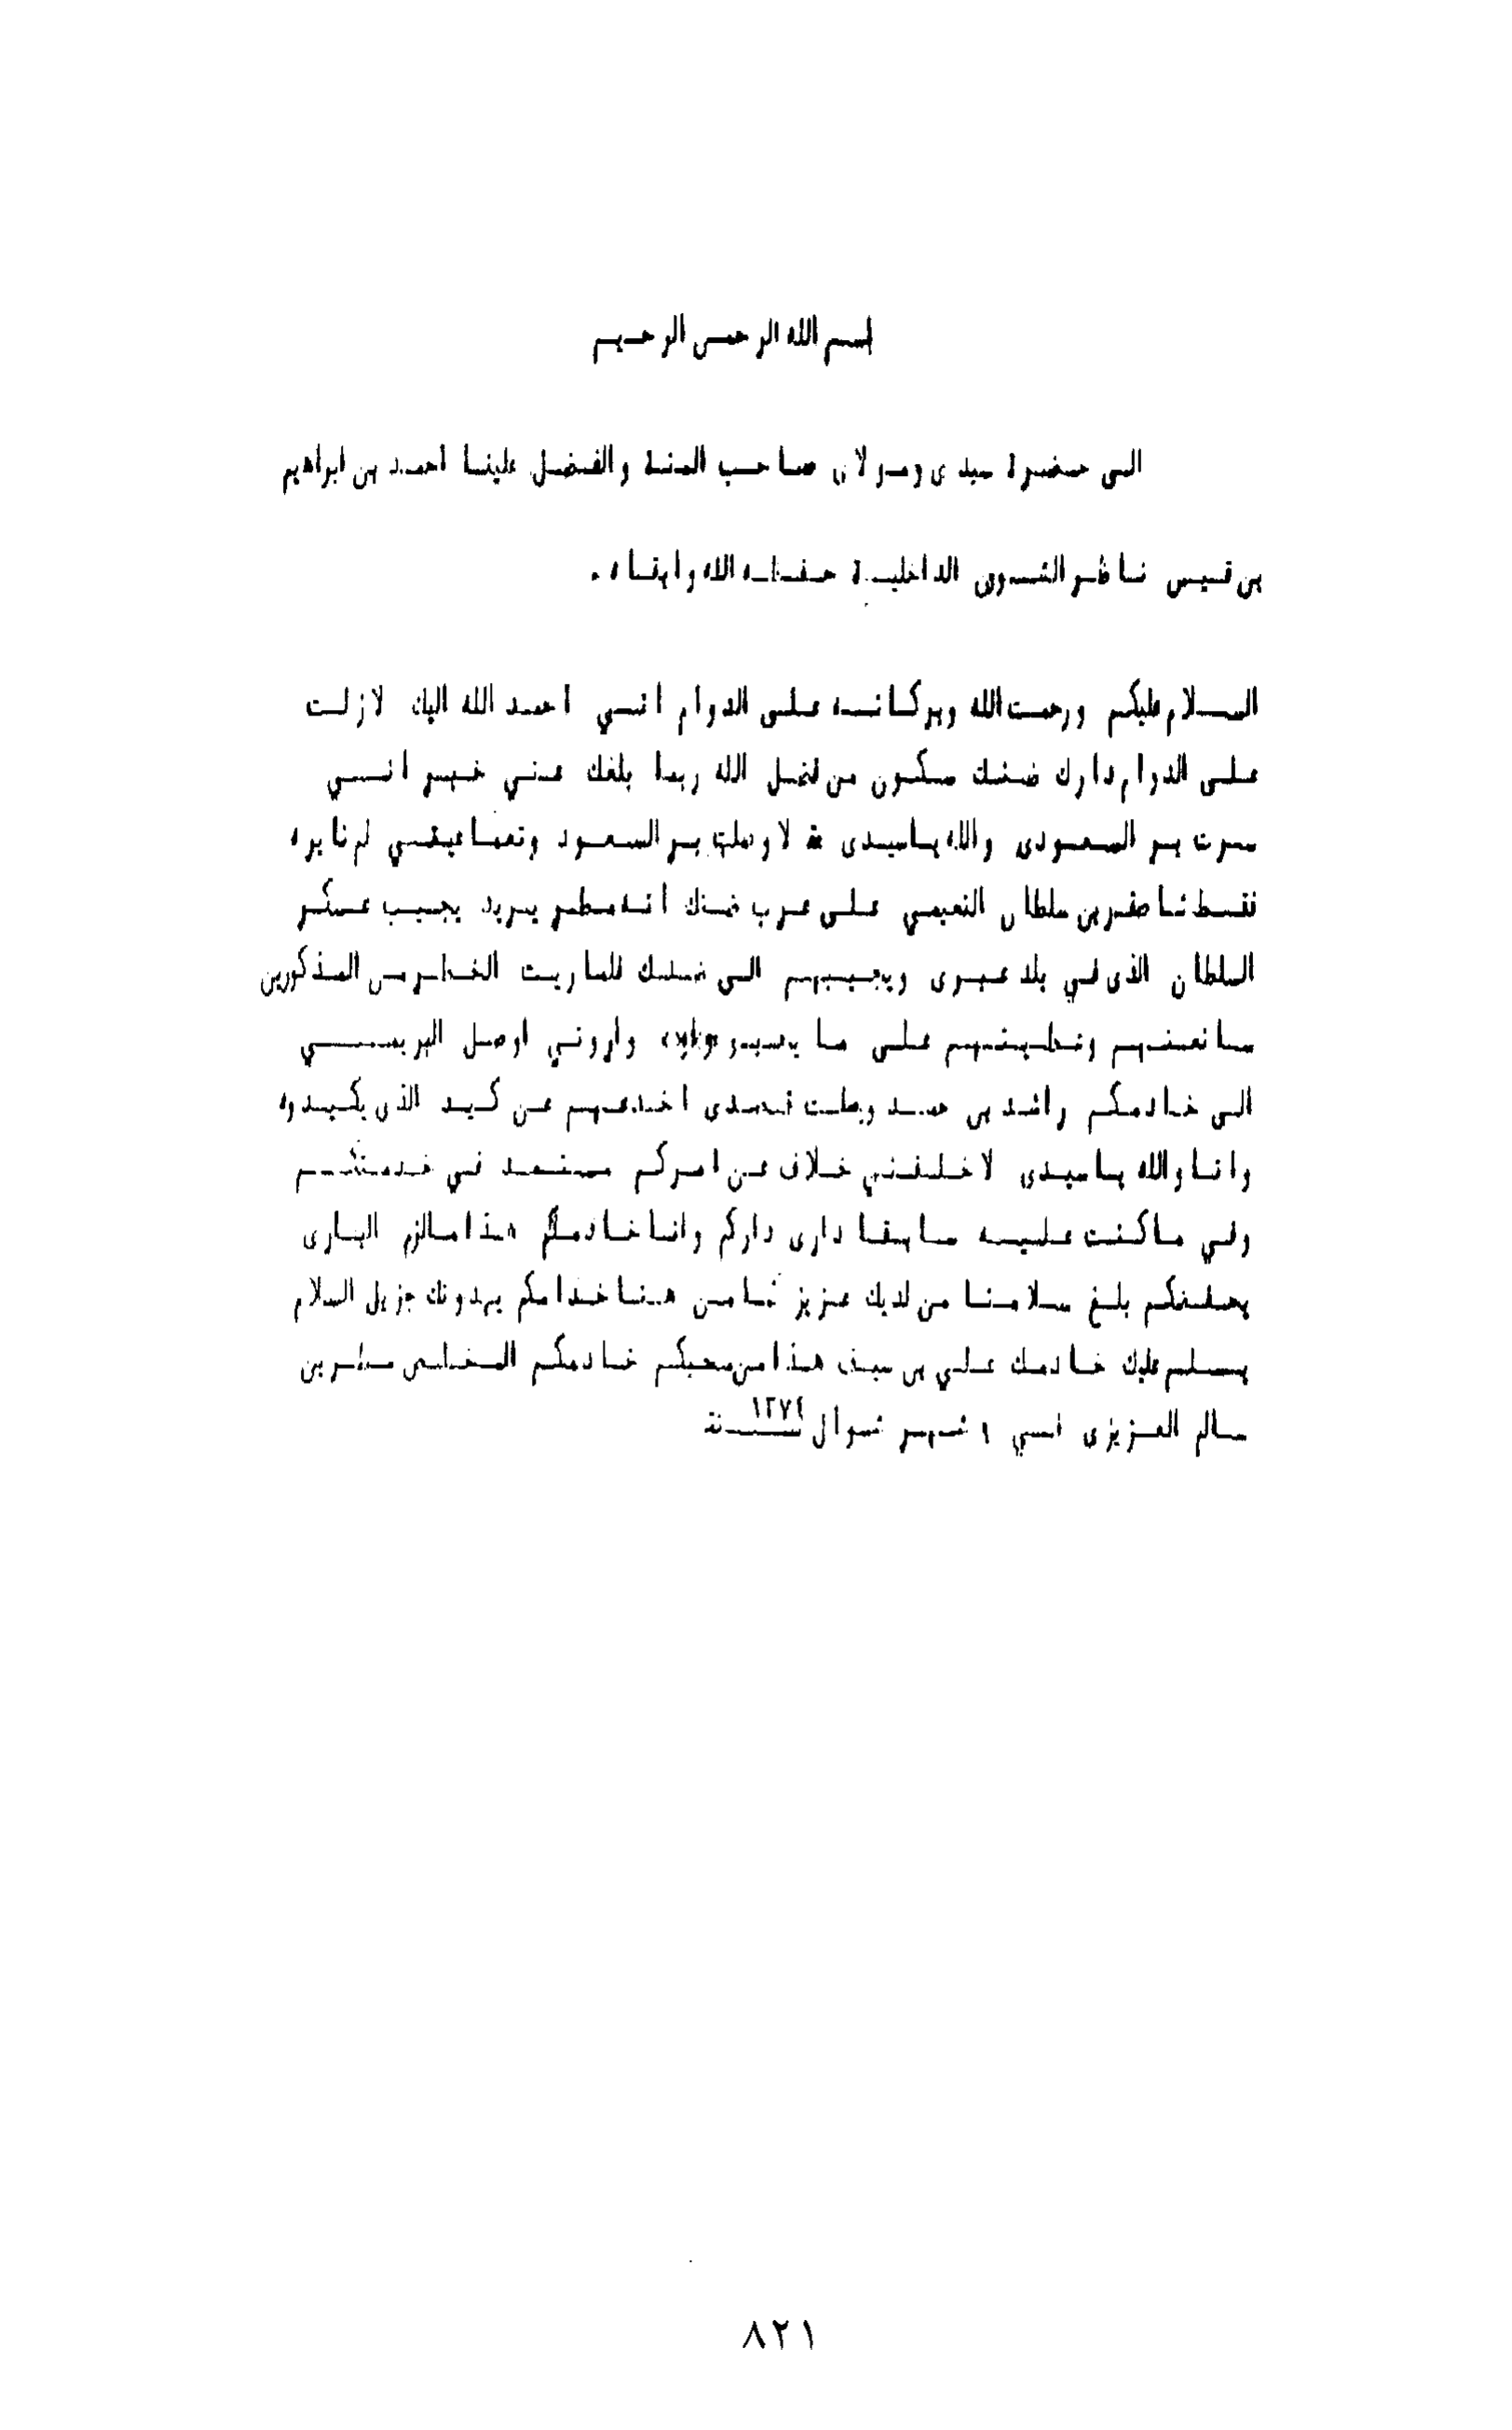 بسم الله الرحمن الرحيم
الى حضرة سيدى ومولاى صاحب المنة والفضل علينا احمد بن ابراهيم
بن قيس ناظر الشئون الداخلية حفظه الله وابقاه .
السلام عليكم ورحمت الله وبركاته على الدوام انني احمد الله اليك لازلت
على الدوام دارك ضنك مكون من فضل الله ربما بلغك عني خبر انني
سرت بر السعودى والله ياسيدى لا وصلت بر السعود
صقر بن سلطان النعيمي على عرب ضنك انه مطر يريد يجيب عسكر
السلطان الذى في بلد عبرى ويجيبهم الى ضنك فلما ريت الخطر من المذكورين
على ما واروني اوصل البريمي
الى خادمكم راشد بن حمد وجلت قصدى اخدعهم عن كيد الذى يكيدوه
وانا والله ياسيدى لا خلفني خلاف عن امركم مستعد في خدمتكم
وفي ماكنت عليه سابقا دارى داركم وانا خادمكم هذا مالزم البارى
يحفظكم بلغ سلامنا من لديك عزيز كما من هنا خدامكم يهدونك جزيل السلام
يسلم عليك خادمك علي بن سيف هذا من محبكم خادمكم المخلص مطر بن
سالم العزيزى في ١ شهر شوال سنة ١٣٧٤
٨٢١